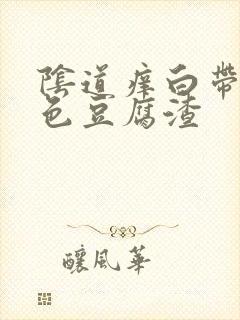 陰道痒白帶
色豆腐渣
釀風華